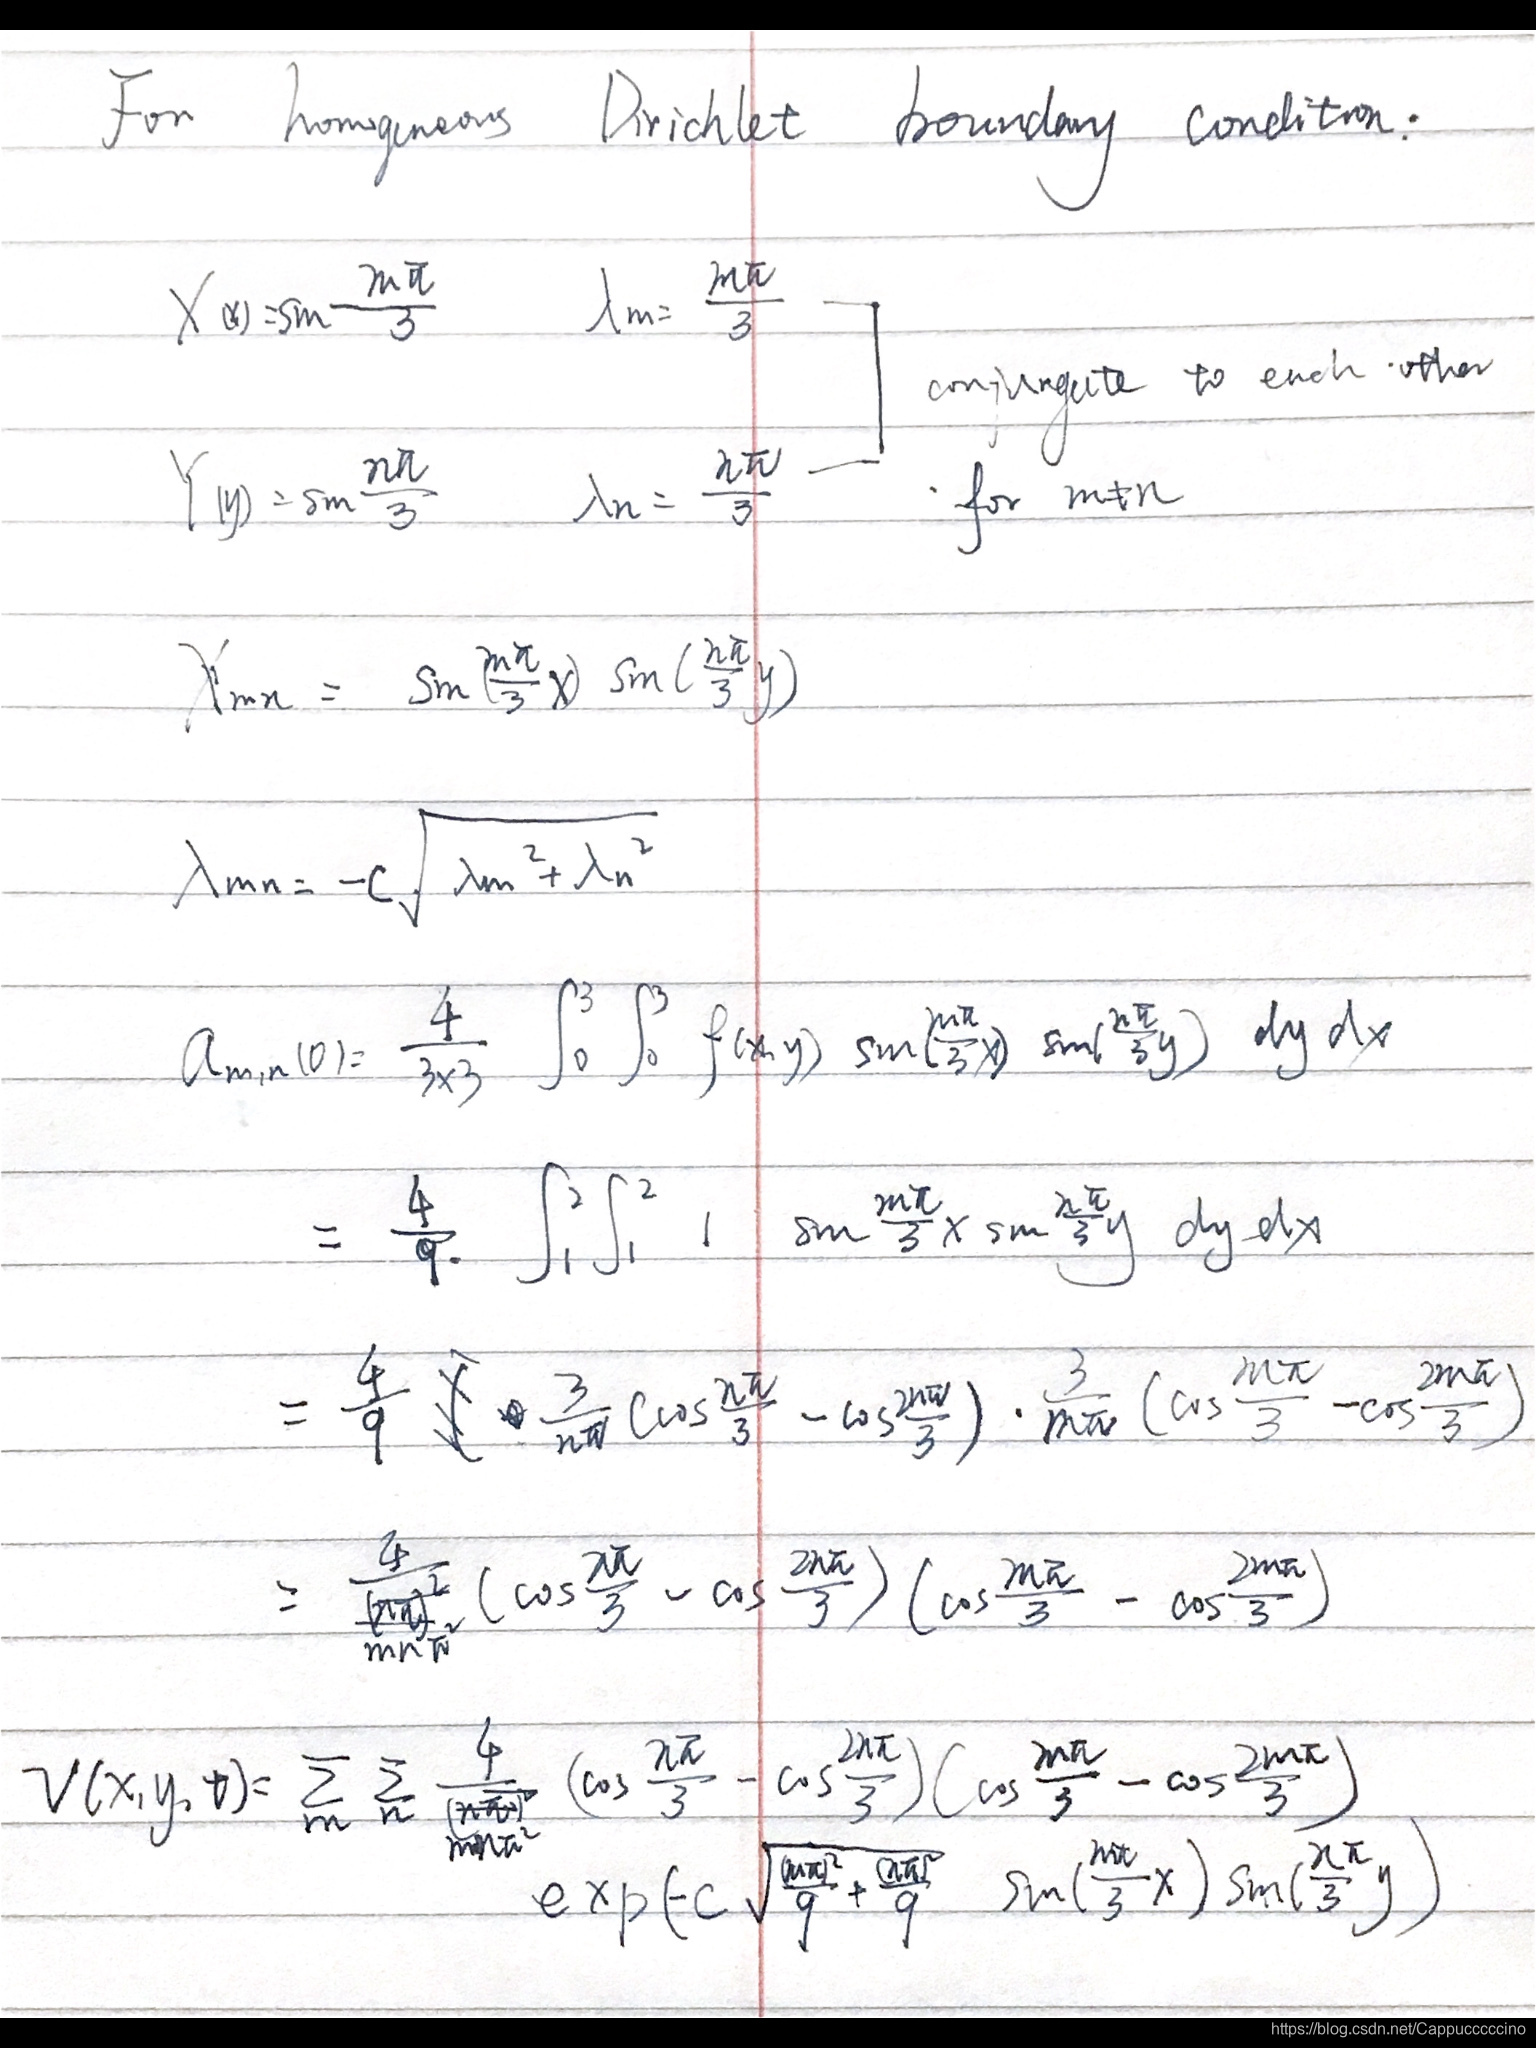 For homogeneous Dirichlet boundary condition.
X(x) = sin mπ/3    λm = mπ/3
conjungate to each other
Y(y) = sin nπ/3    λn = nπ/3    for m≠n
Xmn = sin(mπ/3 x) sin(nπ/3 y)
λmn = -c√(λm² + λn²)
am,n(0) = 4/(3×3) ∫₀³ ∫₀³ f(x,y) sin(mπ/3 x) sin(nπ/3 y) dy dx
= 4/9. ∫₁² ∫₁² 1 sin mπ/3 x sin nπ/3 y dy dx
= 4/9 3/nπ (cos nπ/3 - cos 2nπ/3) · 3/mπ (cos mπ/3 - cos 2mπ/3)
= 4/mnπ² (cos nπ/3 - cos 2nπ/3) (cos mπ/3 - cos 2mπ/3)
V(x,y,t) = Σm Σn 4/mnπ² (cos nπ/3 - cos 2nπ/3) (cos mπ/3 - cos 2mπ/3)
exp(-c √((mπ)²/9 + (nπ)²/9) sin(mπ/3 x) sin(nπ/3 y))
https://blog.csdn.net/Cappucccccino